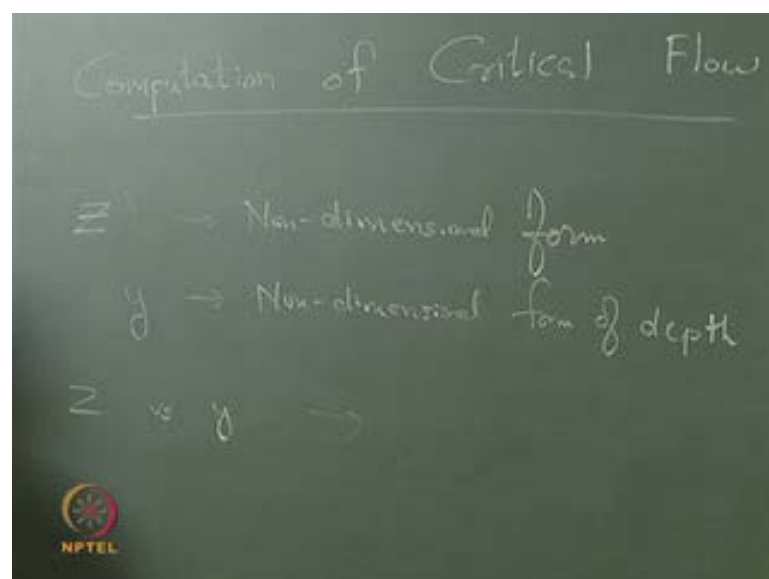 Computation of Critical Flow
Z → Non-dimensional form
y → Non-dimensional form of depth
Z vs y →
NPTEL